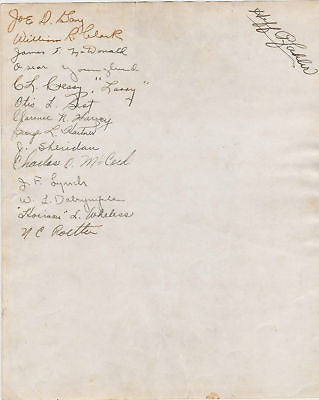 Joe D. Gary
William R. Clark
James F. McDonald
Oscar Youngland
C.L. Creasy, "Larry"
Otis L. Gist
Clarence R. Harvey
George L.
J. Sheridan
Charles O. McCech
J. F. Lynch
W. L. Dalrymple
L. Wheless
N C